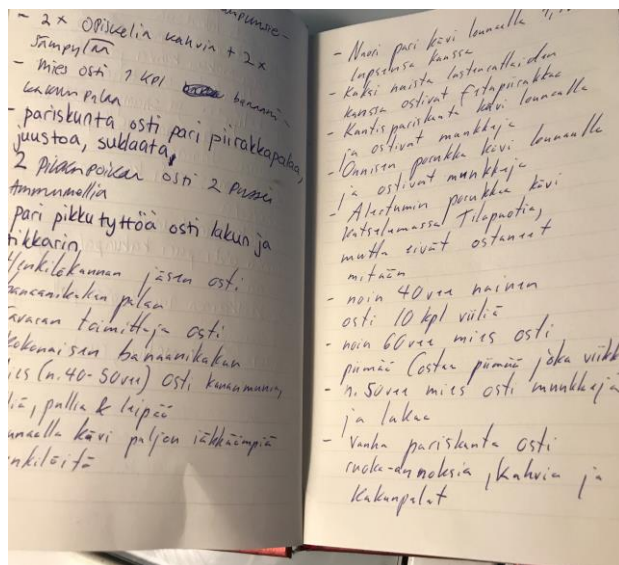 - 2x opiskelin kahvin + 2x
sämpylää
- mies osti 1 kpl banaani-
kakun palan
- pariskunta osti pari piirakkapalaa,
juustoa, suklaata,
2 pikkupoikaa osti 2 pussia
ammummollia
pari pikkutyttöä osti lakun ja
tikkarin,
Henkilökunnan jäsen osti
banaanikakun palan
tavaran toimittaja osti
kokonaisen banaanikakun
ies (n. 40-50vee) osti kananmunia,
iliä, pullia & leipää
unaalla kävi paljon iäkkäämpiä
nkilöitä
- Nuori pari kävi lounaalla
lapsensa kanssa
- kaksi naista lastenrattaiden
kanssa ostivat fetapiirakkaa
- Kantispariskunta kävi lounaalla
ja ostivat munkkeja
- Onnisen porukka kävi lounaalla
ja ostivat munkkeja
- Alestumin porukka kävi
katselemassa Tilapuotia,
mutta eivät ostaneet
mitään
- noin 40vee nainen
osti 10 kpl viiliä
- noin 60vee mies osti
piimää (ostaa piimää joka viikk
- n. 50vee mies osti munkkeja
ja lakua
- Vanha pariskunta osti
ruoka-annoksia, kahvia ja
kakunpalat